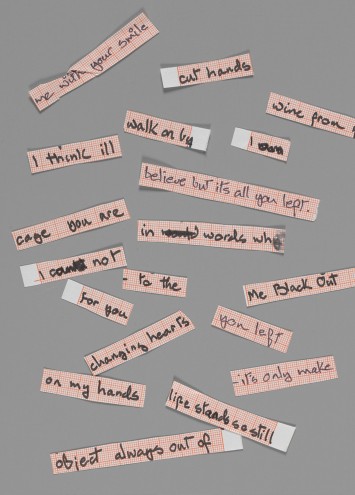 me with your smile
cut hands
wine from
walk on by
I
I think ill
believe but it's all you left.
cage you are
in words whe
I not
to the
for you
Me Black Out
you left
changing hearts
it's only make
on my hands
life stands so still
object always out of